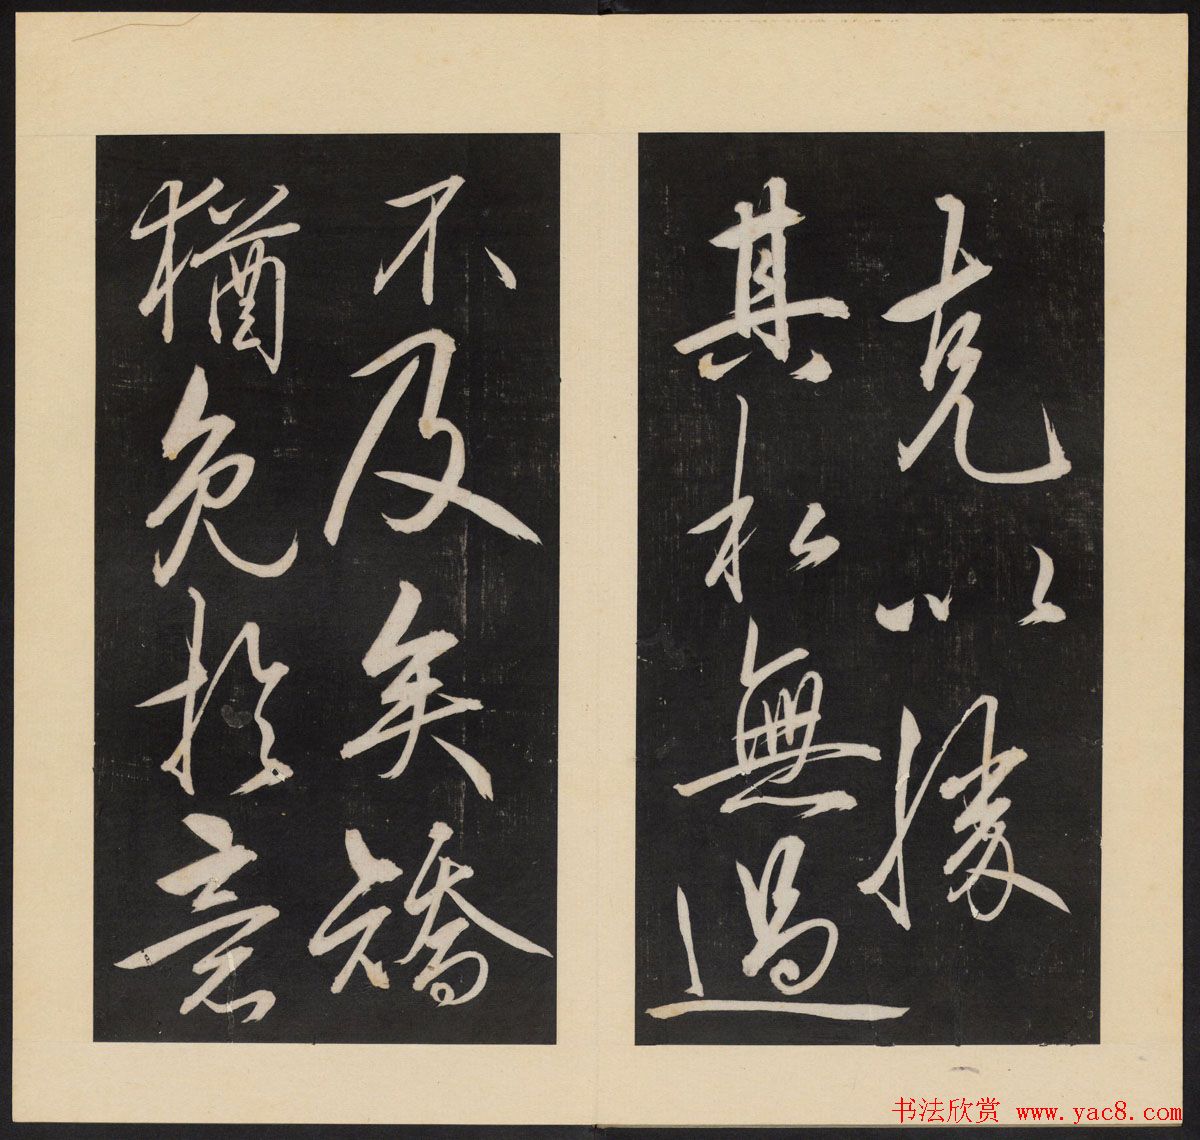 克以勝
其私無過
不及矣矯
猶免於意
书法欣赏 www.yac8.com